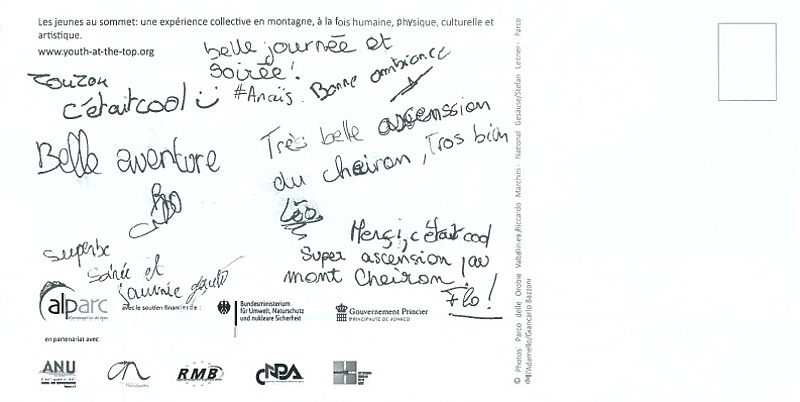 Les jeunes au sommet: une expérience collective en montagne, à la fois humaine, physique, culturelle et
artistique.
www.youth-at-the-top.org
belle journée et
Soirée!
#Anaïs.
Bonne ambiance
c'était cool
Très belle ascenssion
du cheiron, Tros bien
Léo
Belle aventure
Merçi, c'était cool
Super ascension au
mont Cheiron.
Flo!
Superbe
Soirée et
journée
alparc
avec le soutien financier de:
Bundesministerium
für Umwelt, Naturschutz
und nukleare Sicherheit
Gouvernement Princier
PRINCIPAUTÉ DE MONACO
en partenariat avec:
ANU
RMB
CNPA
© Photos Parco delle Orobie Valtellinesi/Riccardo Marchini- National Gesäuse/Stefan Leitner- Parco
dell'Adamello/Giancarlo Bazzoni